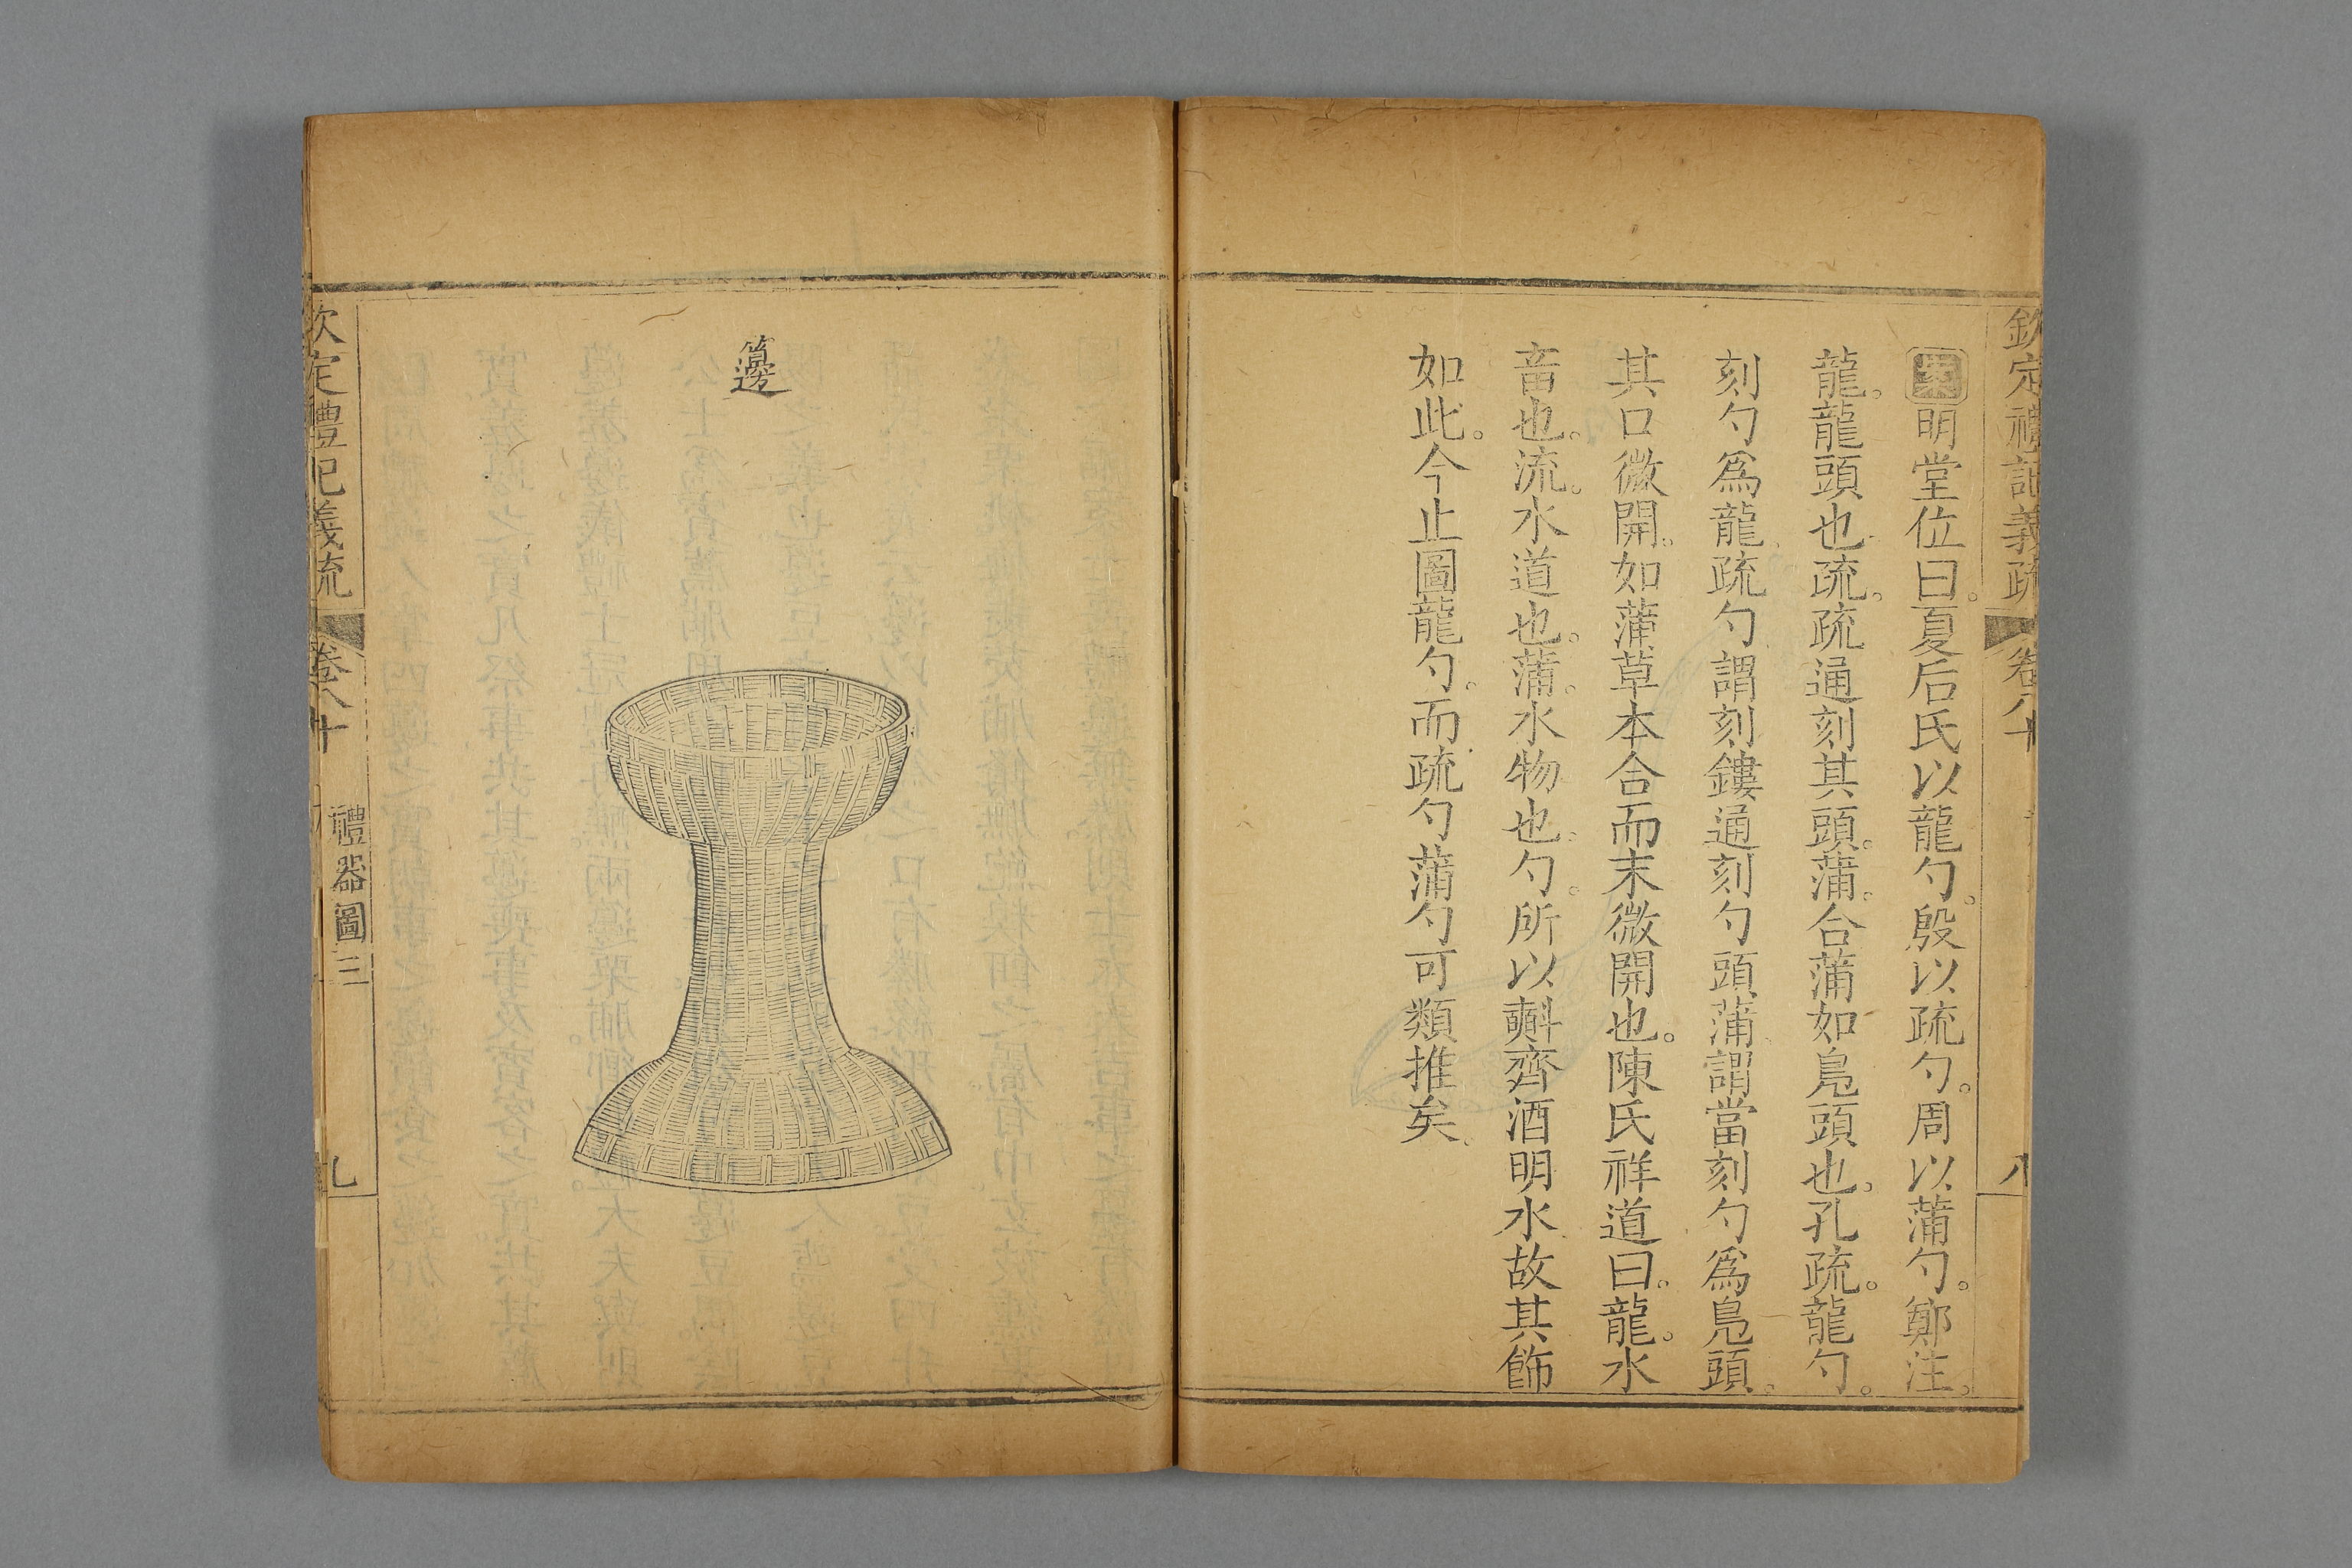 欽定禮記義疏 卷八十 八
案明堂位曰。夏后氏以龍勺。殷以疏勺。周以蒲勺。鄭注。
龍。龍頭也。疏。疏通刻其頭。蒲。合蒲如鳧頭也。孔疏。龍勺。
刻勺爲龍。疏勺謂刻鏤通刻勺頭。蒲謂當刻勺爲鳧頭。
其口微開。如蒲草本合而末微開也。陳氏祥道曰。龍。水
畜也。流。水道也。蒲。水物也。勺。所以㪺齊酒明水故其飾
如此。今止圖龍勺。而疏勺蒲勺可類推矣。
籩
欽定禮記義疏 卷八十 禮器圖三